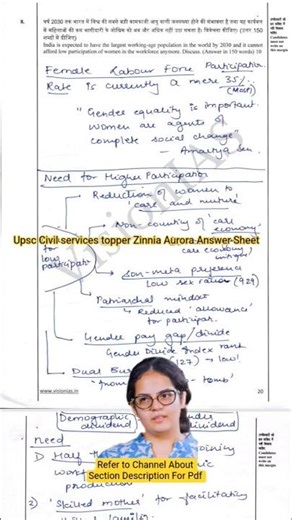 8.
वर्ष 2030 तक भारत में विश्व की सबसे बड़ी कामकाजी आयु वाली जनसंख्या होने की संभावना है तथा यह कार्यबल
में महिलाओं की कम भागीदारी के जोखिम को अब और अधिक नहीं उठा सकता है। विवेचना कीजिए। (उत्तर 150
शब्दों में दीजिए)
India is expected to have the largest working-age population in the world by 2030 and it cannot
afford low participation of women in the workforce anymore. Discuss. (Answer in 150 words) 10
Candidates
must not
write on
this margin
Female Labour Force Participation
Rate is currently a mere 35%.
"Gender equality is important.
Women are agents of
complete social change"
- Amartya Sen
Need for Higher Participation
Reduction of women to
'care and nurture'
Non-counting of 'care
economy'
Upsc Civil services topper Zinnia Aurora Answer Sheet
for
low
participatn
care economy
Son-meta preference
Low sex ratio (929)
Patriarchal mindset
Reduced 'allowance'
for participatn.
Gender pay gap/divide
Gender Divide Index rank
(127) → low!
Dual
www.visionias.in
20
VisionIAS
Demographic
dividend
dividend
need
1) Half th
joining
production
2) 'Skilled mother' for facilitating
Candidates
must not
write on
this margin
Refer to Channel About
Section Description For Pdf